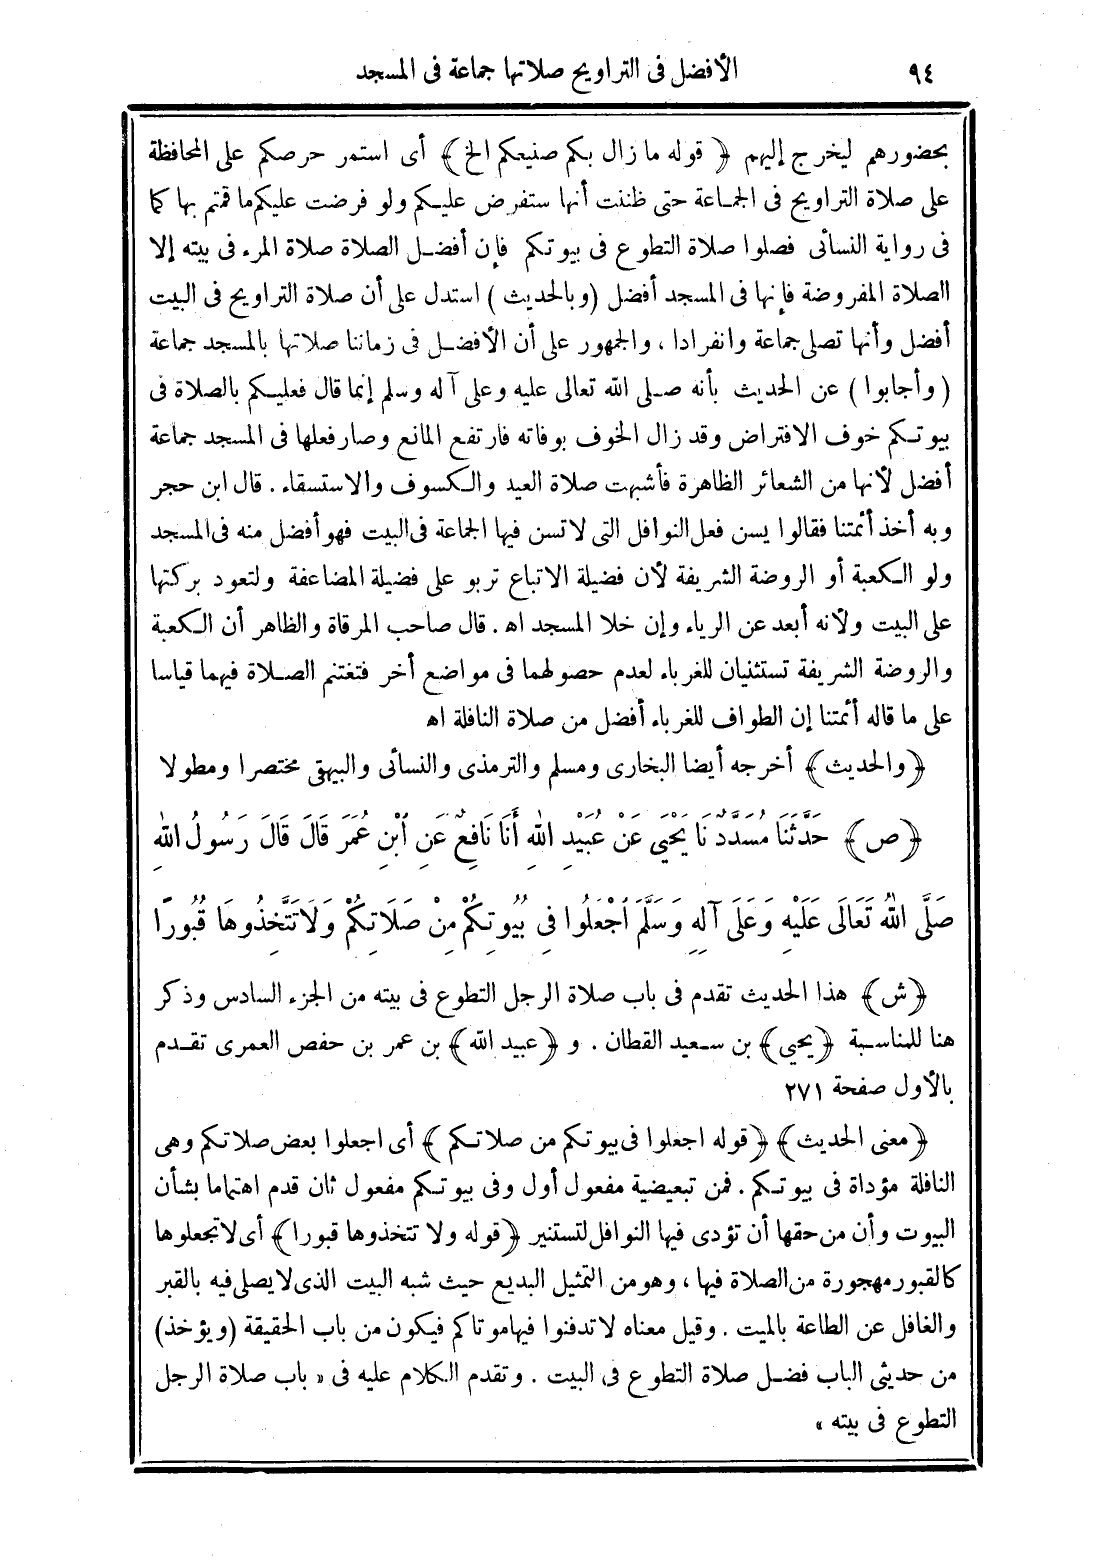 ٩٤
الأفضل فى التراويح صلاتها جماعة فى المسجد
بحضورهم ليخرج إليهم ﴿ قوله ما زال بكم صنيعكم الخ ﴾ أى استمر حرصكم على المحافظة
على صلاة التراويح فى الجماعة حتى ظننت أنها ستفرض عليكم ولو فرضت عليكم ما قمتم بها كما
فى رواية النسائى فصلوا صلاة التطوع فى بيوتكم فإن أفضل الصلاة صلاة المرء فى بيته إلا
االصلاة المفروضة فإنها فى المسجد أفضل (وبالحديث) استدل على أن صلاة التراويح فى البيت
أفضل وأنها تصلى جماعة وانفرادا ، والجمهور على أن الأفضل فى زماننا صلاتها بالمسجد جماعة
( وأجابوا ) عن الحديث بأنه صلى الله تعالى عليه وعلى آله وسلم إنما قال فعليكم بالصلاة فى
بيوتكم خوف الافتراض وقد زال الخوف بوفاته فارتفع المانع وصار فعلها فى المسجد جماعة
أفضل لأنها من الشعائر الظاهرة فأشبهت صلاة العيد والكسوف والاستسقاء . قال ابن حجر
وبه أخذ أئمتنا فقالوا يسن فعل النوافل التى لا تسن فيها الجماعة فى البيت فهو أفضل منه فى المسجد
ولو الكعبة أو الروضة الشريفة لأن فضيلة الاتباع تربو على فضيلة المضاعفة ولتعود بركتها
على البيت ولأنه أبعد عن الرياء وإن خلا المسجد اه . قال صاحب المرقاة والظاهر أن الكعبة
والروضة الشريفة تستثنيان للغرباء لعدم حصولهما فى مواضع أخر فتغتنم الصلاة فيهما قياسا
على ما قاله أئمتنا إن الطواف للغرباء أفضل من صلاة النافلة اه
﴿ والحديث ﴾ أخرجه أيضا البخارى ومسلم والترمذى والنسائى والبيهقى مختصرا ومطولا
﴿ ص ﴾ حَدَّثَنَا مُسَدَّدٌ نَا يَحْيَى عَنْ عُبَيْدِ اللهِ أَنَا نَافِعٌ عَنِ ابْنِ عُمَرَ قَالَ قَالَ رَسُولُ اللهِ
صَلَّى اللهُ تَعَالَى عَلَيْهِ وَعَلَى آلِهِ وَسَلَّمَ اجْعَلُوا فِى بُيُوتِكُمْ مِنْ صَلَاتِكُمْ وَلَا تَتَّخِذُوهَا قُبُورًا
﴿ ش ﴾ هذا الحديث تقدم فى باب صلاة الرجل التطوع فى بيته من الجزء السادس وذكر
هنا للمناسبة ﴿ يحيى ﴾ بن سعيد القطان . و ﴿ عبيد الله ﴾ بن عمر بن حفص العمرى تقدم
بالأول صفحة ٢٧١
﴿ معنى الحديث ﴾ ﴿ قوله اجعلوا فى بيوتكم من صلاتكم ﴾ أى اجعلوا بعض صلاتكم وهى
النافلة مؤداة فى بيوتكم . فمن تبعيضية مفعول أول وفى بيوتكم مفعول ثان قدم اهتماما بشأن
البيوت وأن من حقها أن تؤدى فيها النوافل لتستنير ﴿ قوله ولا تتخذوها قبورا ﴾ أى لا تجعلوها
كالقبور مهجورة من الصلاة فيها ، وهو من التمثيل البديع حيث شبه البيت الذى لا يصلى فيه بالقبر
والغافل عن الطاعة بالميت . وقيل معناه لا تدفنوا فيها موتاكم فيكون من باب الحقيقة (ويؤخذ)
من حديثى الباب فضل صلاة التطوع فى البيت . وتقدم الكلام عليه فى « باب صلاة الرجل
التطوع فى بيته »